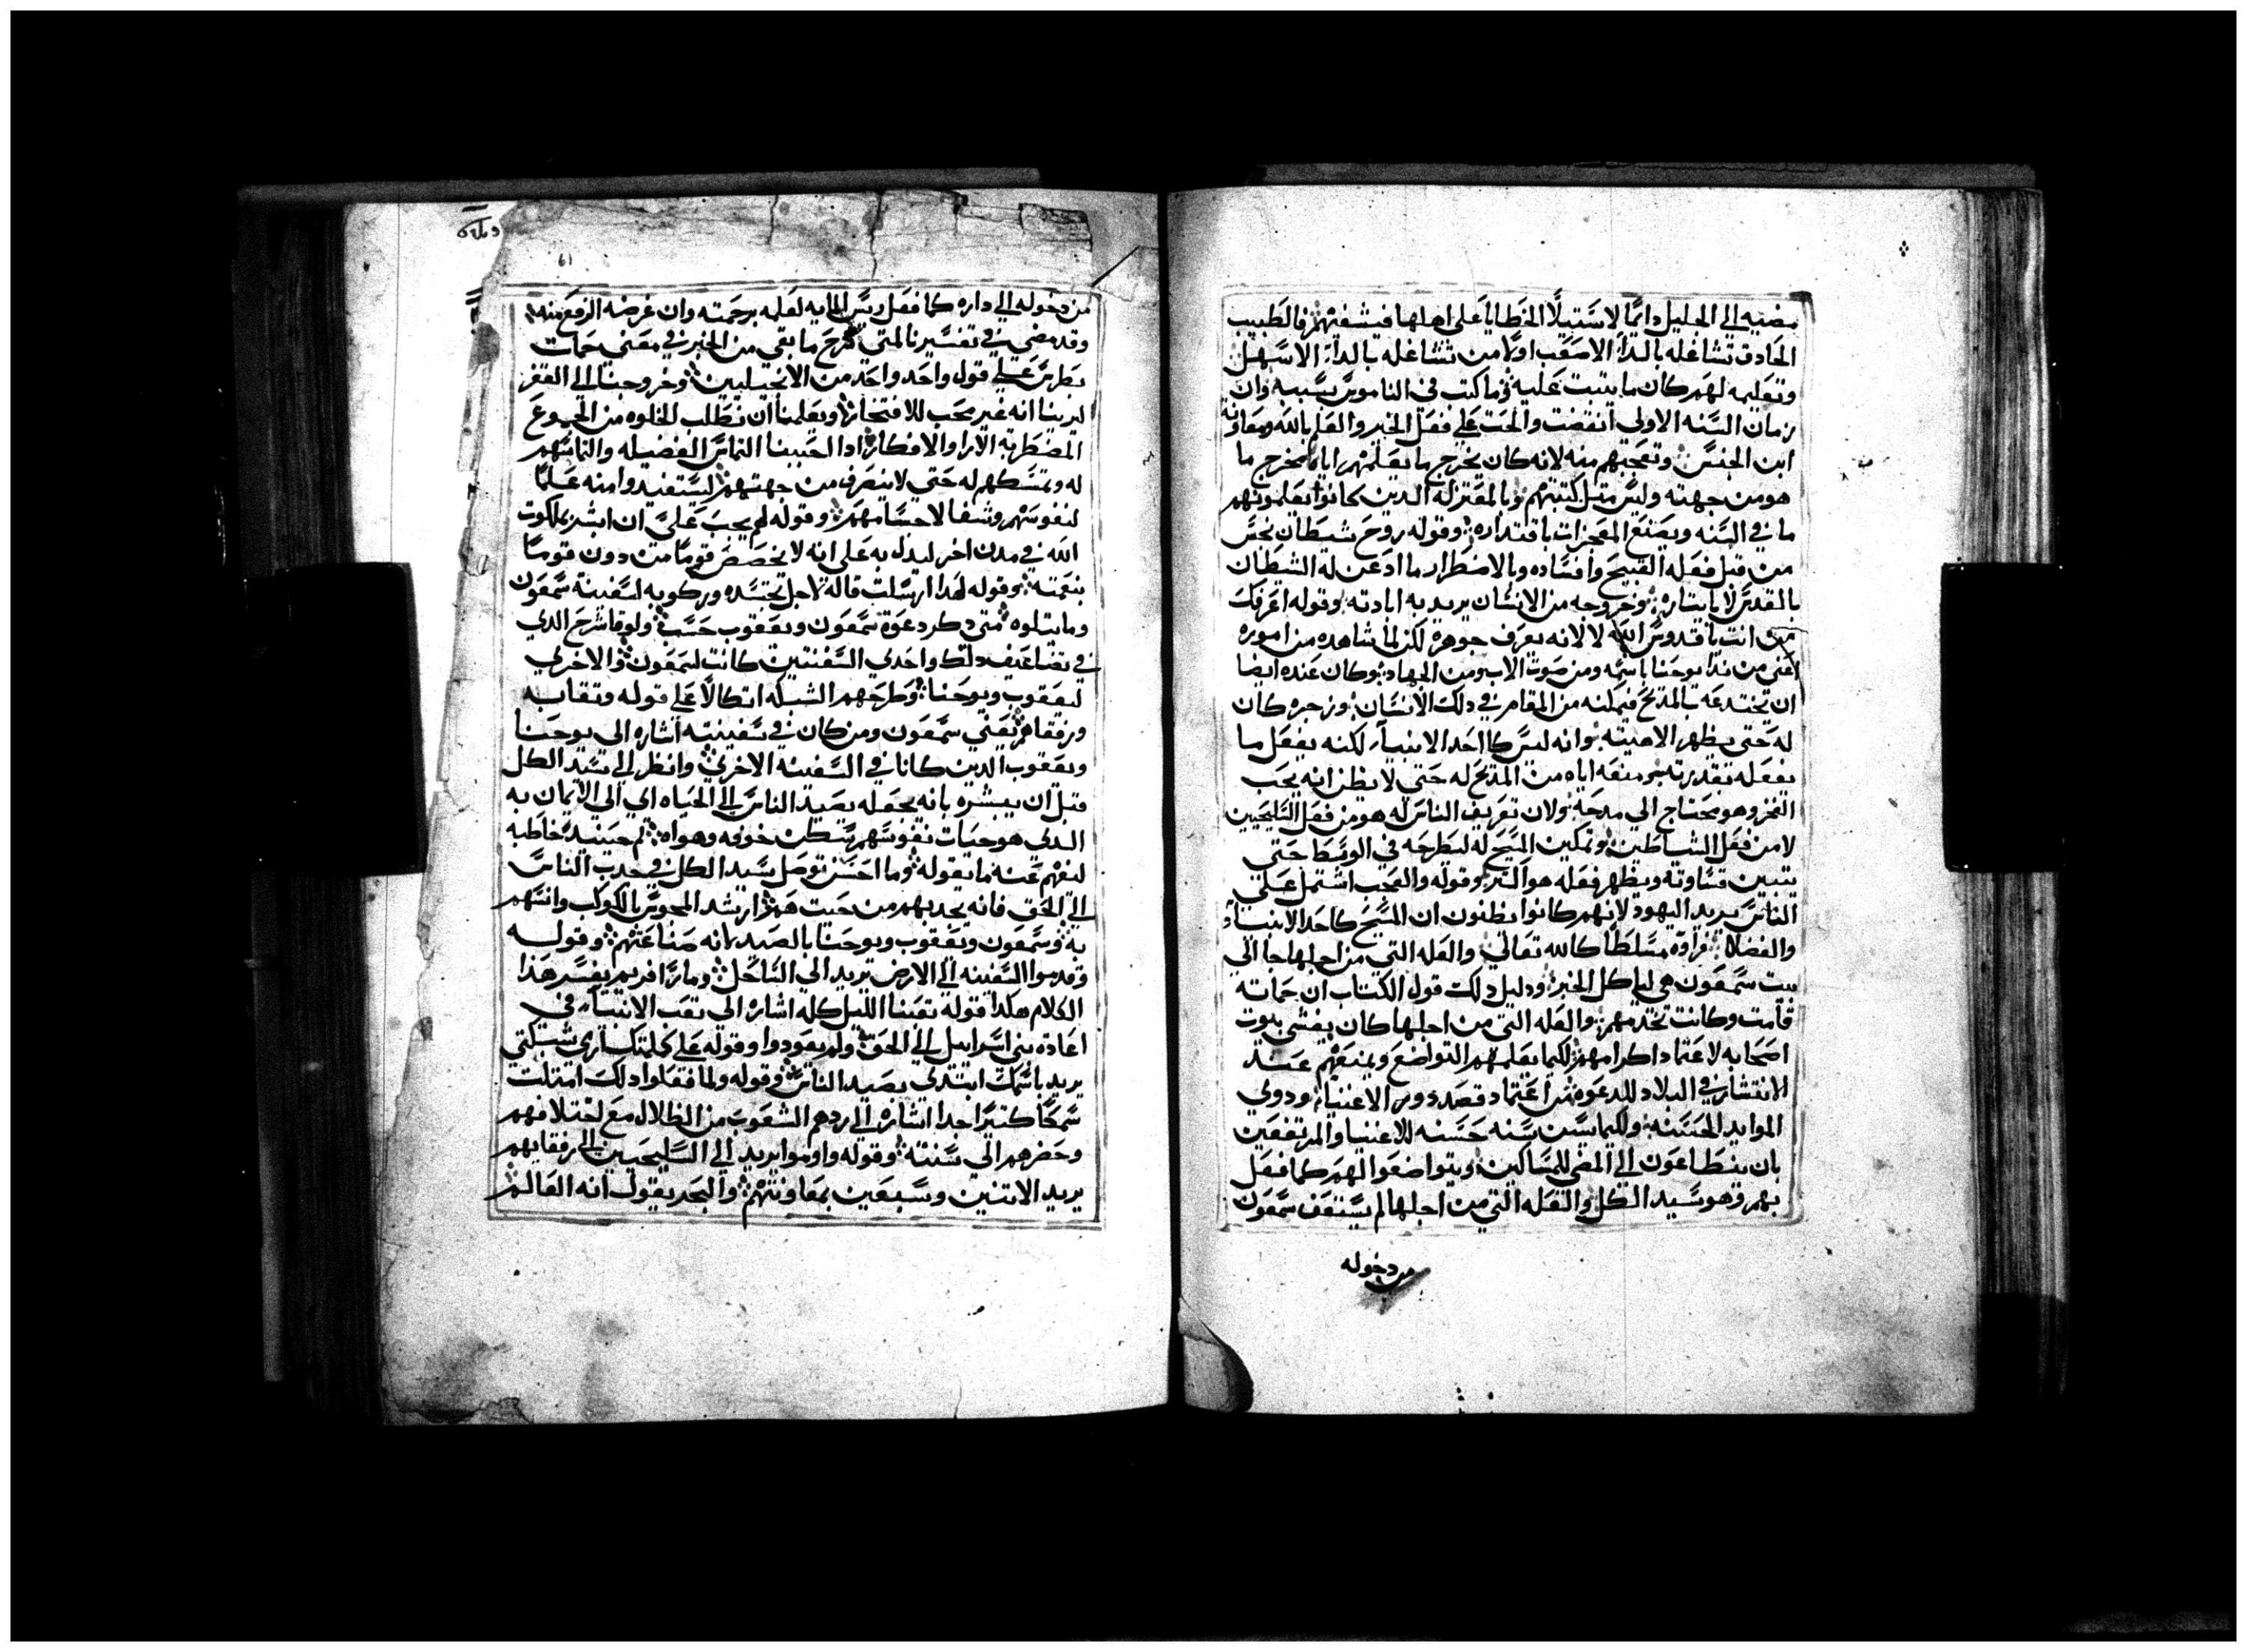 مضيه الي الجليل دايمًا لاستيلا الخطايا علي اهلها فيشفيهم فالطبيب
الحادق تشاغله بالدآ الاصعب اولًا من تشاغله بالدآ الاسهل
وتعليمه لهم كان ما يتبت عليه في ما كتب في الناموس بسببه وان
زمان السنه الاولي انقضت والحت علي فعل الخير والعلم بالله ومعاونة
ابن الجنس وتعجبهم منه لانه كان يخرج ما يعلمهم اياه مخرج ما
هو من جهته وليس متل كتبتهم وبالمعتزله الدين كانوا يعلمونهم
ما في السنه ويصنع المعجزات باقتداره وقوله روح شيطان نجس
من قبل فعله القبيح وافساده وبالاضطرار ما ادعن له الشيطان
بالقدس لا بايتاره وخروجه من الانسان يريد به ابادته وقوله اعرفك
من انت يا قدوس الله لا لانه يعرف جوهره لكن لما شاهده من اموره
اعني من ندا يوحنا باسمه ومن صوت الاب ومن الجهاد وكان عنده ايضا
ان يختدعه بالمدح فيمكنه من المقام في دلك الانسان وزجره كان
له حتي يظهر الاهيته وانه ليس كااحد الانبيآ لكنه يفعل ما
يفعله بقدرته ومنعه اياه من المدح له حتي لا يظن انه يحب
الفخر وهو محتاج الي مدحه ولان تعريف الناس له هو من فعل السليحيين
لا من فعل الشياطين وتمكين المسيح له ليطرحه في الوسط حتي
يتبين قساوته ويظهر فعله هو اكتر وقوله والعجب اشتمل علي
الناس يريد اليهود لانهم كانوا يظنون ان المسيح كاحد الانبيآ
والفضلا فراوه مسلطا كالله تعالي والعله التي من اجلها جا الي
بيت سمعون هي لياكل الخبز ودليل دلك قول الكتاب ان حماته
قامت وكانت تخدمهم والعله التي من اجلها كان يغشي بيوت
اصحابه لاعتماد اكرامهم لكيما يعلمهم التواضع ويمنعهم عند
الانتشار في البلاد للدعوه من اعتماد قصد دور الاغنيا ودوي
الموايد الحسنه ولكيما يسن سنه حسنه للاغنيا والمرتفعين
بان يتطاعون الي المضي للمساكين ويتواضعوا لهم كما فعل
بهم وهو سيد الكل والعله التي من اجلها لم يستعف سمعون
من دخوله
من دخوله الي داره كما فعل ريس المايه لعلمه برحمته وان غرضه الرفع منه
وقد مضي في تفسيرنا لمتي شرح ما بقي من الخبر في معني حمات
بطرس علي قول واحد واحد من الانجيليين وخروجنا الي القفر
ليرينا انه غير محب للافتخار ويعلمنا ان نطلب الخلوه من الجموع
المضطربه الارا والافكار ادا احببنا التماس الفضيله والتماسهم
له وتمسكهم له حتي لا ينصرف من جهتهم ليستفيدوا منه علمًا
لنفوسهم وشفا لاجسامهم وقوله لهم يجب عليَّ ان ابشر بملكوت
الله في مدن اخر ليدل به علي انه لا يخصص قومًا من دون قومًا
بنعمته وقوله لهدا ارسلت قاله لاجل تجسده وركوبه لسفينة سمعون
وما يتلوه متي دكر دعوة سمعون ويعقوب حسب ولوقا شرح الدي
في تضاعيف دلك واحدي السفنتين كانت لسمعون والاخري
ليعقوب ويوحنا وطرحهم الشبكه اتكالًا علي قوله وتقابه
ورفقاهم يعني سمعون ومن كان في سفينته اشاره الي يوحنا
ويعقوب الدين كانا في السفينه الاخري وانظر الي سيد الكل
قبل ان يبشره بانه يجعله يصيد الناس الي الحياه اي الي الايمان به
الدي هو حيات نفوسهم يسكن خوفه وهواه تم حينيد خاطبه
ليفهم عنه ما يقوله وما احسن توصل سيد الكل في جدب الناس
الي الحق فانه يجدبهم من حيت هم ارشد المجوس بالكوكب وانسهم
به وسمعون ويعقوب ويوحنا بالصيد لانه صناعتهم وقوله
وقدموا السفينه الي الارض يريد الي الساحل وماري افريم يفسر هدا
الكلام هكدا قوله تعبنا الليل كله اشاره الي تعب الانبيآ في
اعادة بني اسراييل الي الحق ولم يعودوا وقوله علي كلمتك ارمي شبكتي
يريد باسمك ابتدي بصيد الناس وقوله ولما فعلوا دلك امتلت
سمكًا كتيرًا جدا اشاره الي ردهم الشعوب من الظلال مع اختلافهم
وحضرهم الي سنته وقوله واوموا يريد الي السليحيين الي رفقايهم
يريد الاتنين وسبعين بمعاونتهم والبحر يقول انه العالم